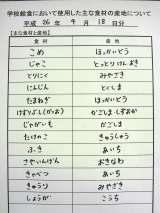 学校給食において使用した主な食材の産地について
平成 26 年 4 月 18 日分
【主な食材と産地】
食材 産地
こめ ほっかいどう
じゃこ とっとり けん おき
とりにく みやざき
にんじん とくしま
たまねぎ ほっかいどう
けずりぶし(かつお) かごしま・しずおか
かじめん かごしま
たけのこ きゅうしゅう
ふき あいち
さやいんげん おきなわ
きゃべつ あいち
きゅうり みやざき
しょうが こうち